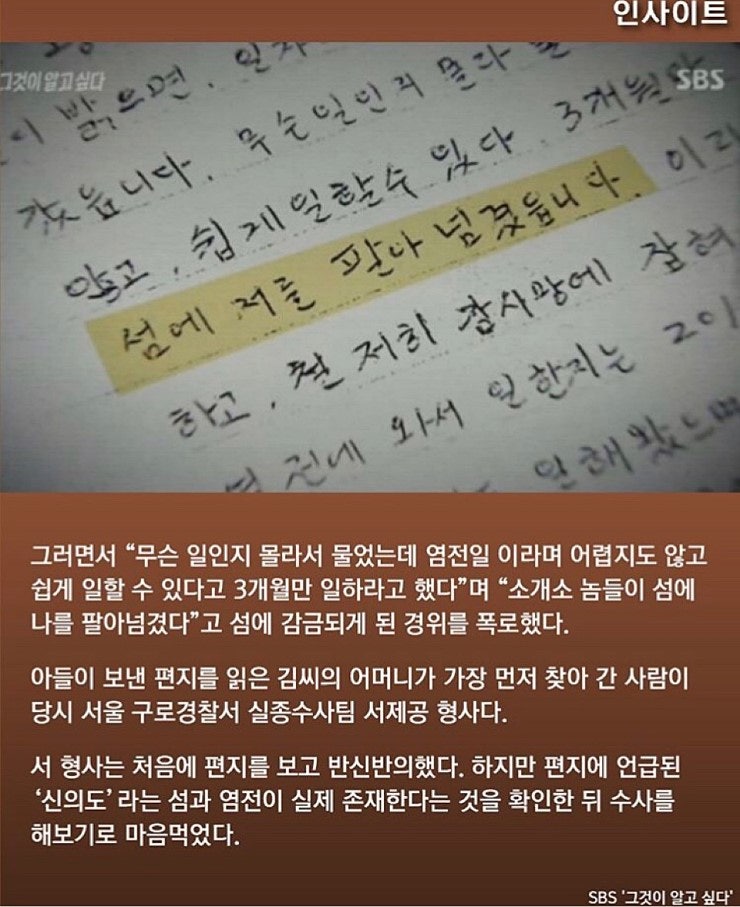 인사이트
그것이 알고싶다
SBS
이 밝으면, 일자
갔습니다. 무슨일인지 몰라
않고, 쉽게일할수 있다 3개월만
섬에 저를 팔아 넘겼읍니다. 이리
하고, 철 저히 감시망에 잡혀
전에 와서 일한지는
일해왔느
그러면서 “무슨 일인지 몰라서 물었는데 염전일 이라며 어렵지도 않고
쉽게 일할 수 있다고 3개월만 일하라고 했다”며 “소개소 놈들이 섬에
나를 팔아넘겼다”고 섬에 감금되게 된 경위를 폭로했다.
아들이 보낸 편지를 읽은 김씨의 어머니가 가장 먼저 찾아 간 사람이
당시 서울 구로경찰서 실종수사팀 서제공 형사다.
서 형사는 처음에 편지를 보고 반신반의했다. 하지만 편지에 언급된
‘신의도’라는 섬과 염전이 실제 존재한다는 것을 확인한 뒤 수사를
해보기로 마음먹었다.
SBS '그것이 알고 싶다'